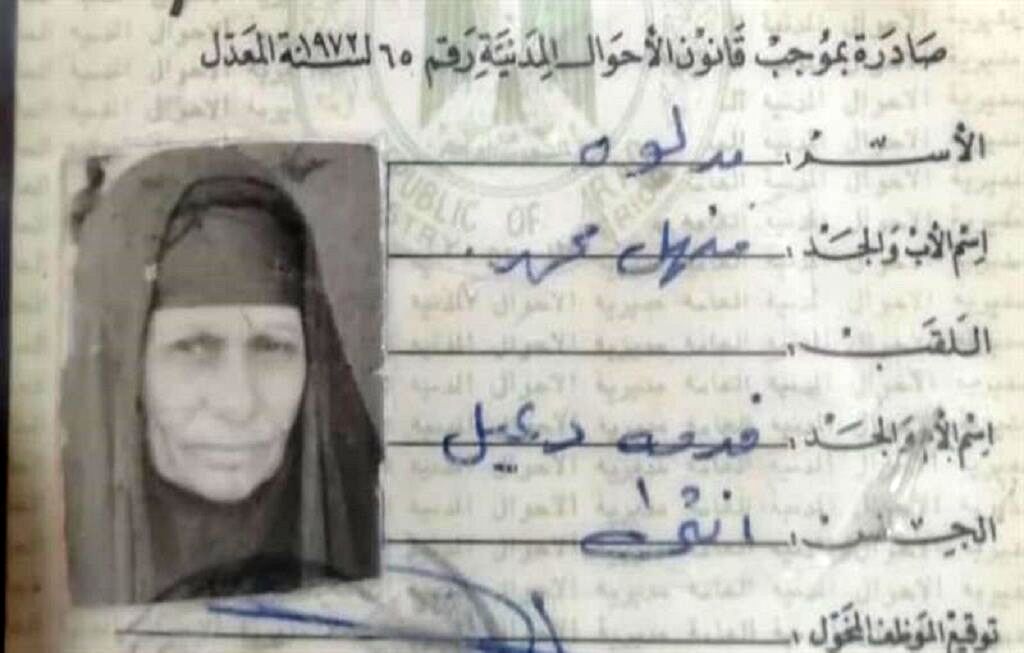 صادرة بموجب قانون الأحوال المدنية رقم ٦٥ لسنة ١٩٧٢ المعدل
الأسم : مدلوه
إسم الأب والجد : منهل محمد
اللقب :
إسم الأم والجد : فرحه دعيبل
الجنس : أنثى
توقيع الموظف المخول :